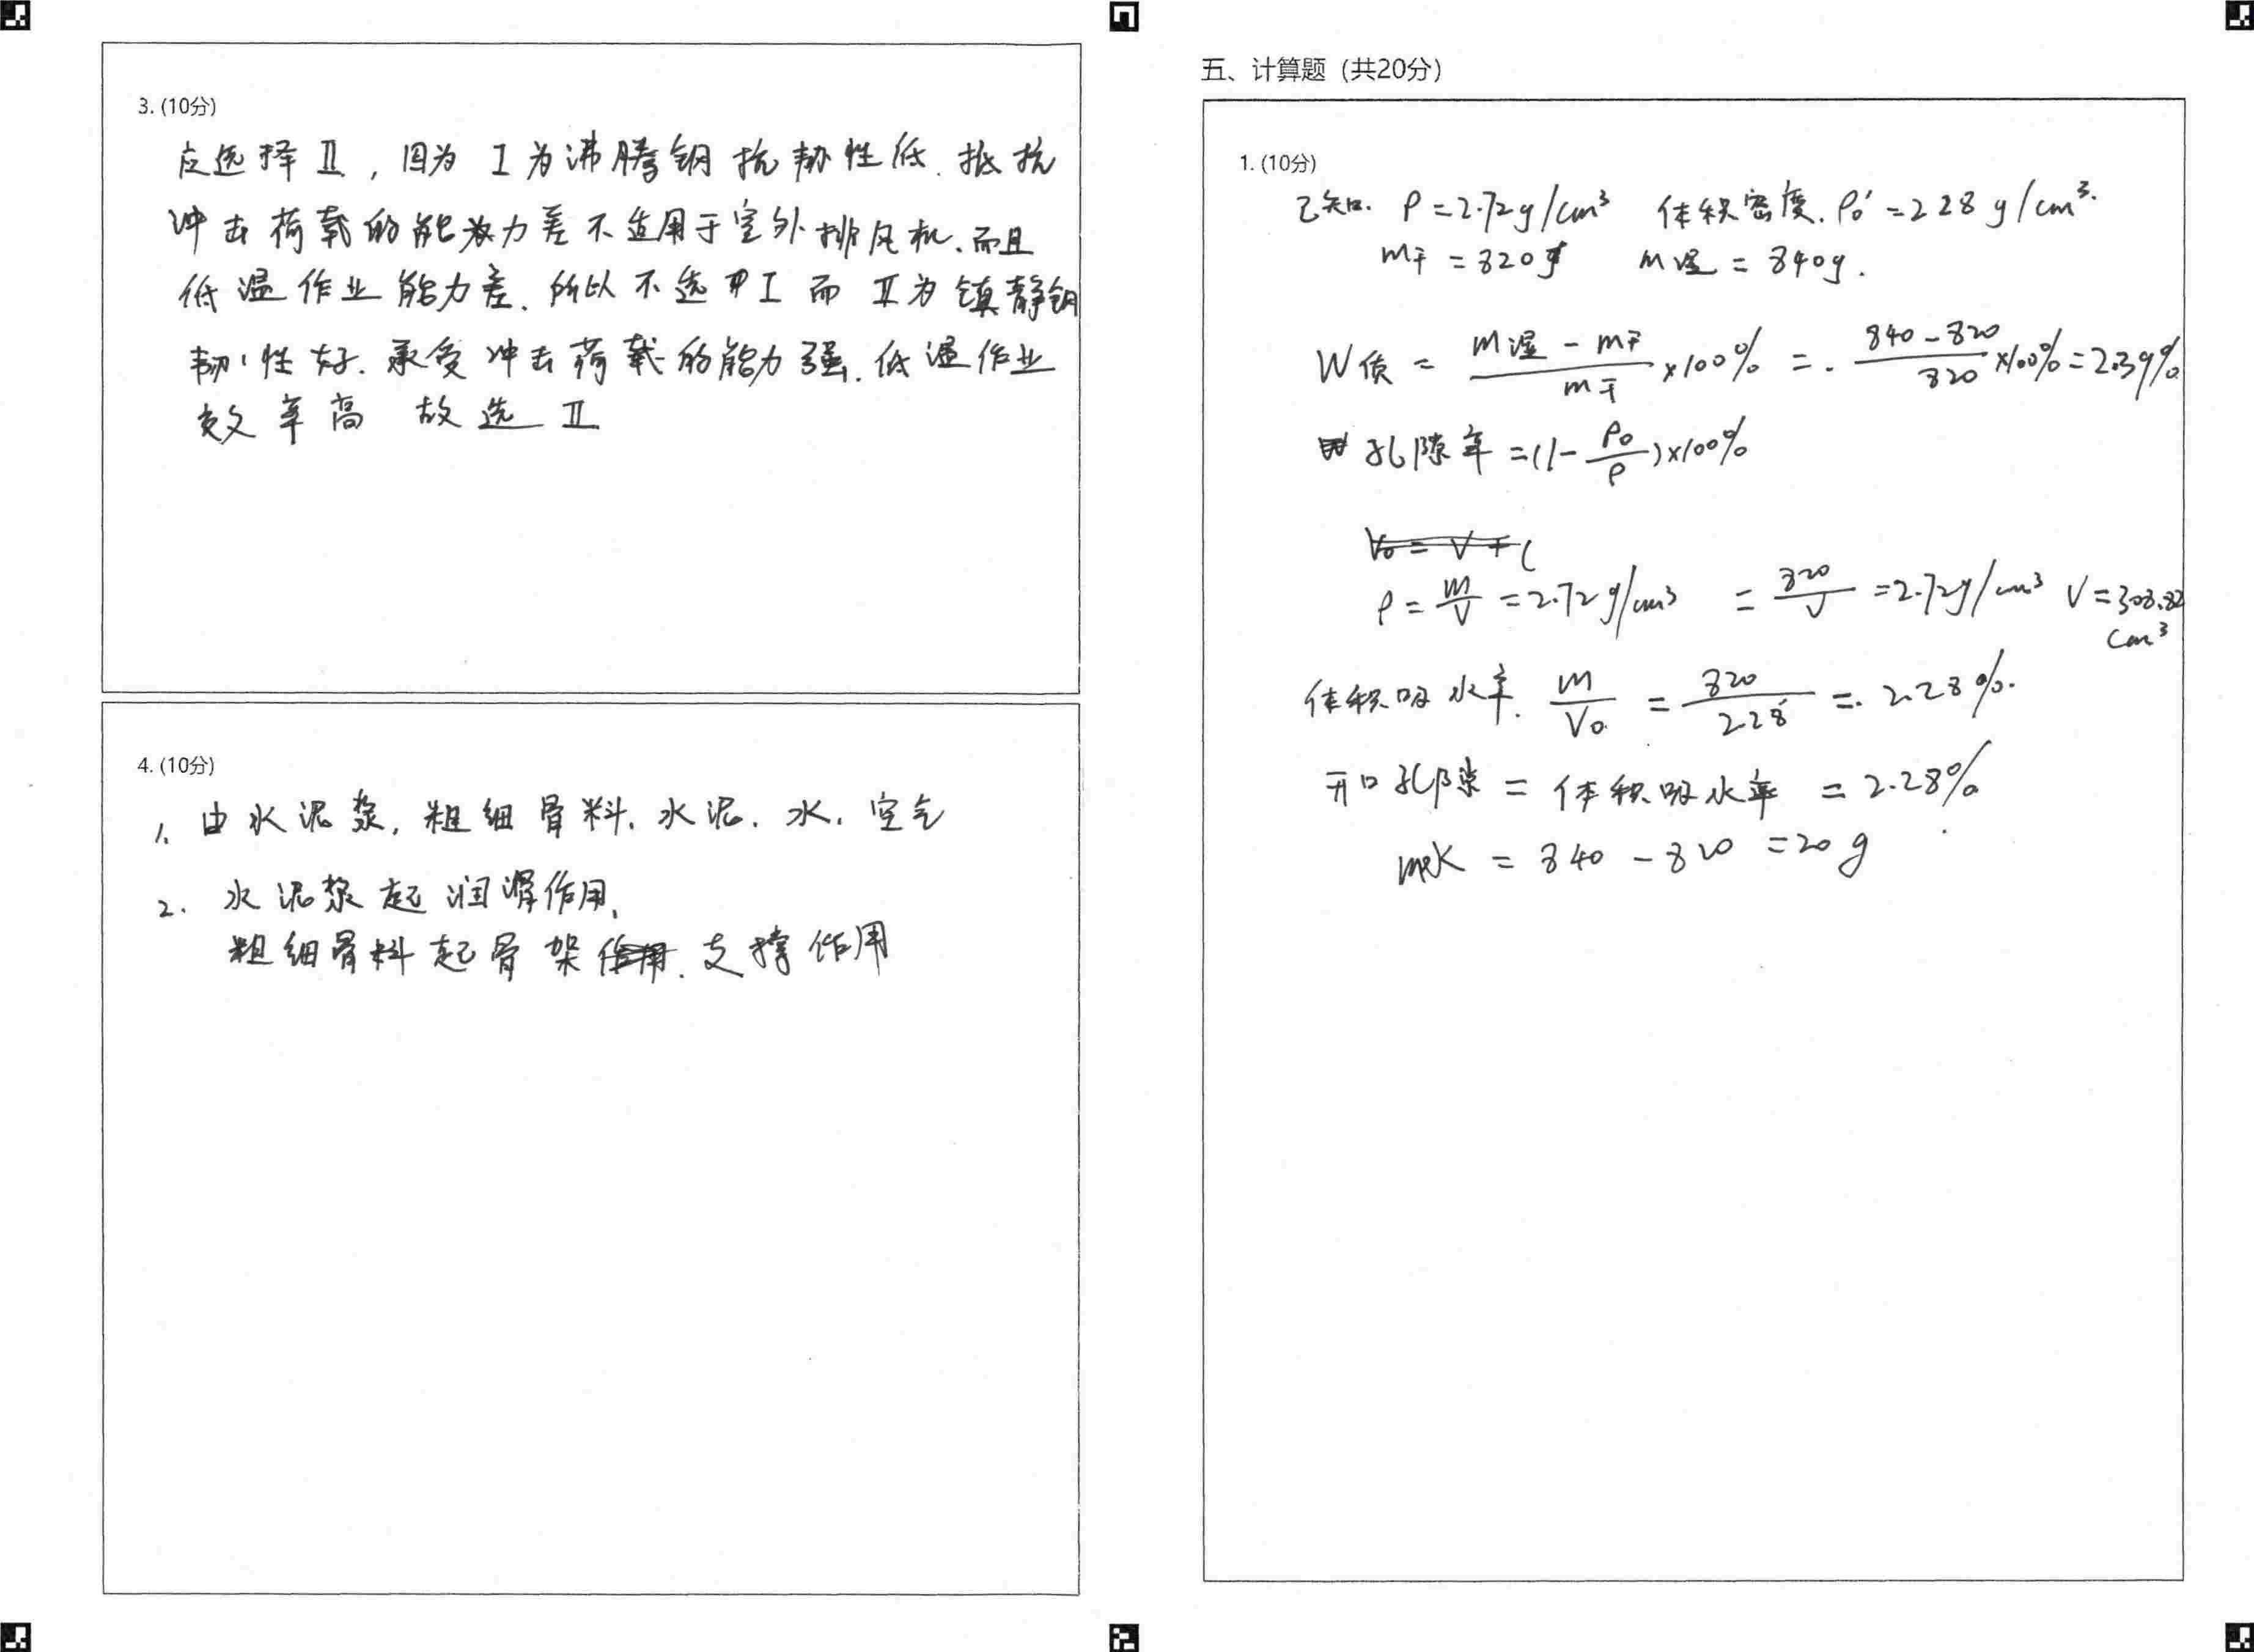 3. (10分)
应选择Ⅱ，因为Ⅰ为沸腾钢抗韧性低.抵抗
冲击荷载的能力差不适用于室外排风机.而且
低温作业能力差.所以不选Ⅰ而Ⅱ为镇静钢
韧性好.承受冲击荷载的能力强.低温作业
效率高 故选Ⅱ
4. (10分)
1. 由水泥浆,粗细骨料.水泥.水.空气
2. 水泥浆起润滑作用,
粗细骨料起骨架.支撑作用
五、计算题（共20分）
1. (10分)
已知. ρ=2.72g/cm³ 体积密度.ρ₀'=228g/cm³.
m干=820g m湿=840g.
W质 = (m湿-m干)/m干 ×100% = (840-820)/820 ×100%=2.39%
孔隙率=(1-ρ₀/ρ)×100%
V₀=V+(
ρ=m/V=2.72g/cm³ =820/V=2.72g/cm³ V=308.82
cm³
体积吸水率. m/V₀ = 820/228 = 2.28%.
开口孔隙 = 体积吸水率 = 2.28%
m水 = 840-820=20g